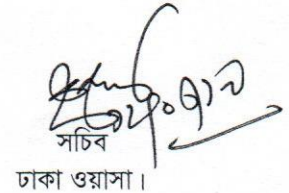 সচিব
ঢাকা ওয়াসা।